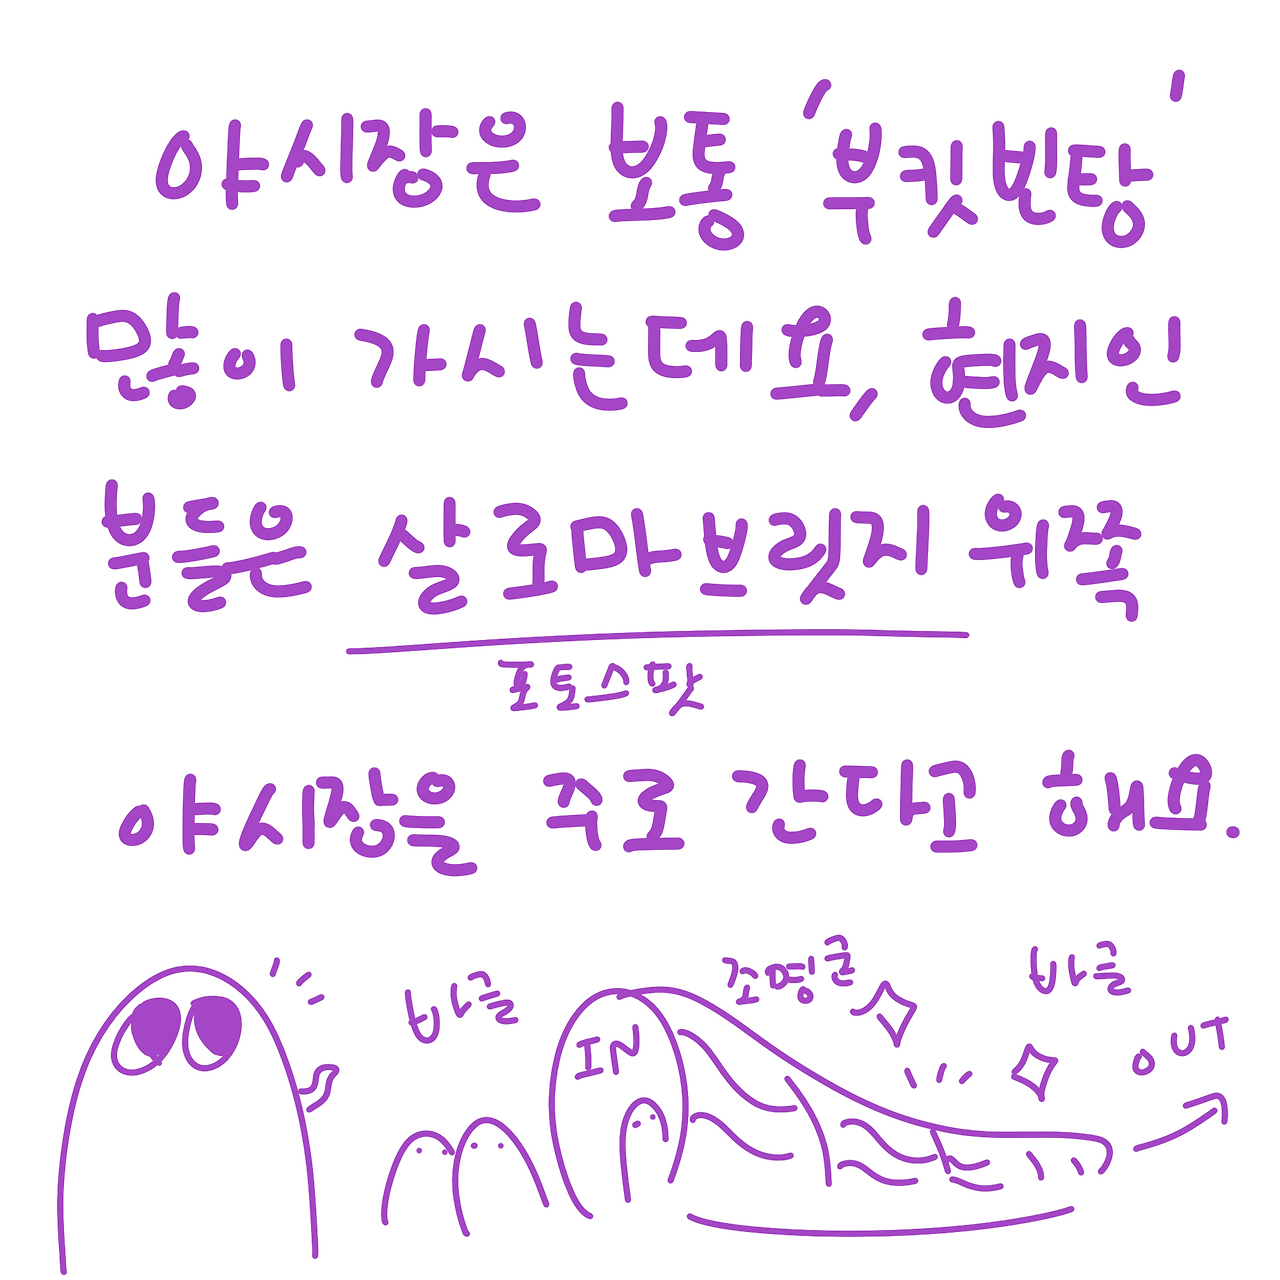 야시장은 보통 '부킷빈탕'
많이 가시는데요, 현지인
분들은 살로마브릿지 위쪽
포토스팟
야시장을 주로 간다고 해요.
바글
IN
조명굳
바글
OUT